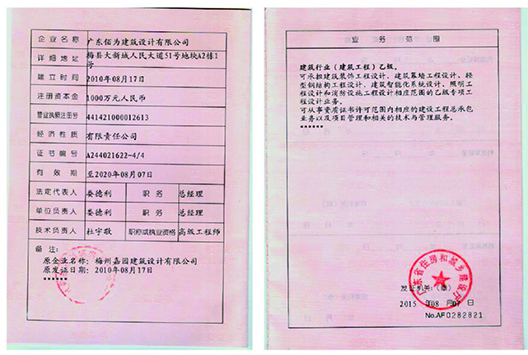 企业名称 广东佰为建筑设计有限公司
详细地址 梅县大新城人民大道51号地块A2栋1号
建立时间 2010年08月17日
注册资本金 1000万元人民币
营业执照注册号 441421000012613
经济性质 有限责任公司
证书编号 A244021622-4/4
有效期 至2020年08月07日
法定代表人 娄德利 职务 总经理
单位负责人 娄德利 职务 总经理
技术负责人 杜宇敬 职称或执业资格 高级工程师
备注:
原企业名称: 梅州嘉园建筑设计有限公司
原发证日期: 2010年08月17日
业务范围
建筑行业(建筑工程)乙级。
可承担建筑装饰工程设计、建筑幕墙工程设计、轻
型钢结构工程设计、建筑智能化系统设计、照明工
程设计和消防设施工程设计相应范围的乙级专项工
程设计业务。
可从事资质证书许可范围内相应的建设工程总承包
业务以及项目管理和相关的技术与管理服务。
广东省住房和城乡建设厅
发证机关:(章)
2015年08月07日
No.AF0282821